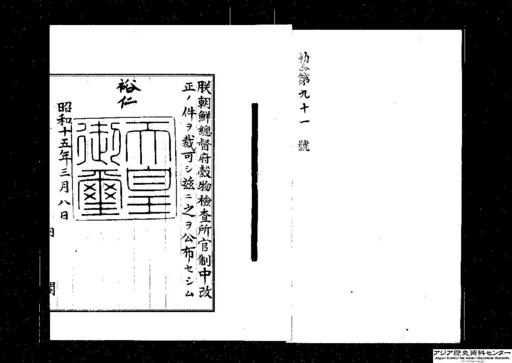 勅令第九十一號
朕朝鮮總督府穀物檢査所官制中改
正ノ件ヲ裁可シ茲ニ之ヲ公布セシム
裕仁
天皇
御璽
昭和十五年三月八日
内閣
アジア歴史資料センター
Japan Center for Asian Historical Records